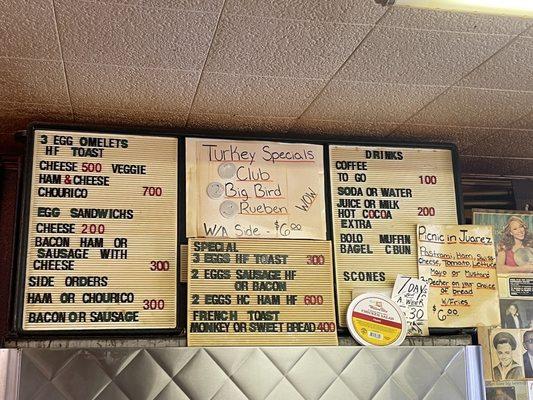 3 EGG OMELETS
HF TOAST
CHEESE 500 VEGGIE
HAM & CHEESE
CHOURICO 700
EGG SANDWICHS
CHEESE 200
BACON HAM OR
SAUSAGE WITH
CHEESE 300
SIDE ORDERS
HAM OR CHOURICO 300
BACON OR SAUSAGE
Turkey Specials
1 Club
2 Big Bird
3 Rueben
WOW
W/A Side - $6.00
SPECIAL
3 EGGS HF TOAST 300
2 EGGS SAUSAGE HF
OR BACON
2 EGGS HC HAM HF 600
FRENCH TOAST
MONKEY OR SWEET BREAD 400
DRINKS
COFFEE
TO GO 100
SODA OR WATER
JUICE OR MILK
HOT COCOA 200
EXTRA
BOLO MUFFIN
BAGEL C BUN
SCONES
Picnic in Juarez
Pastrami, Ham, Swiss
Cheese, Tomato, Lettuce
Mayo or Mustard
on your Choice
of Bread
W/Fries
$6.00